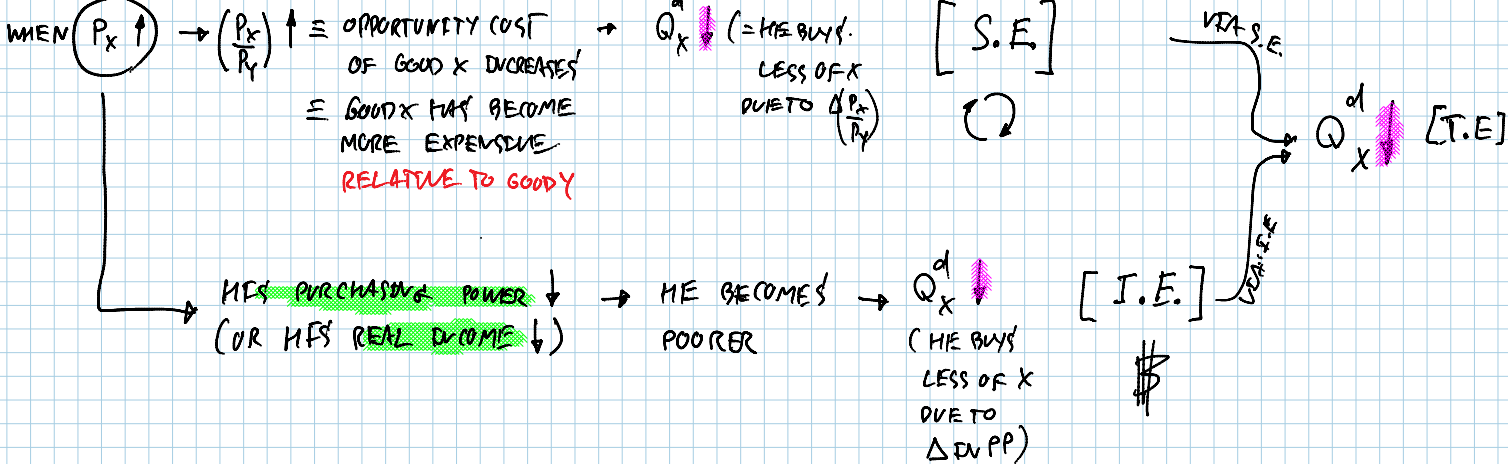 WHEN Px ↑ → (Px/Py) ↑ ≡ OPPORTUNITY COST
OF GOOD X INCREASES
≡ GOOD X HAS BECOME
MORE EXPENSIVE
RELATIVE TO GOOD Y
→ Qxd ↓ (= HE BUYS
LESS OF X
DUE TO Δ(Px/Py)
[S.E.]
VIA S.E.
Qxd ↓ [T.E]
HIS PURCHASING POWER ↓
(OR HIS REAL INCOME ↓)
→ HE BECOMES
POORER
→ Qxd ↓
(HE BUYS
LESS OF X
DUE TO
Δ IN PP)
[I.E.]
$
VIA I.E